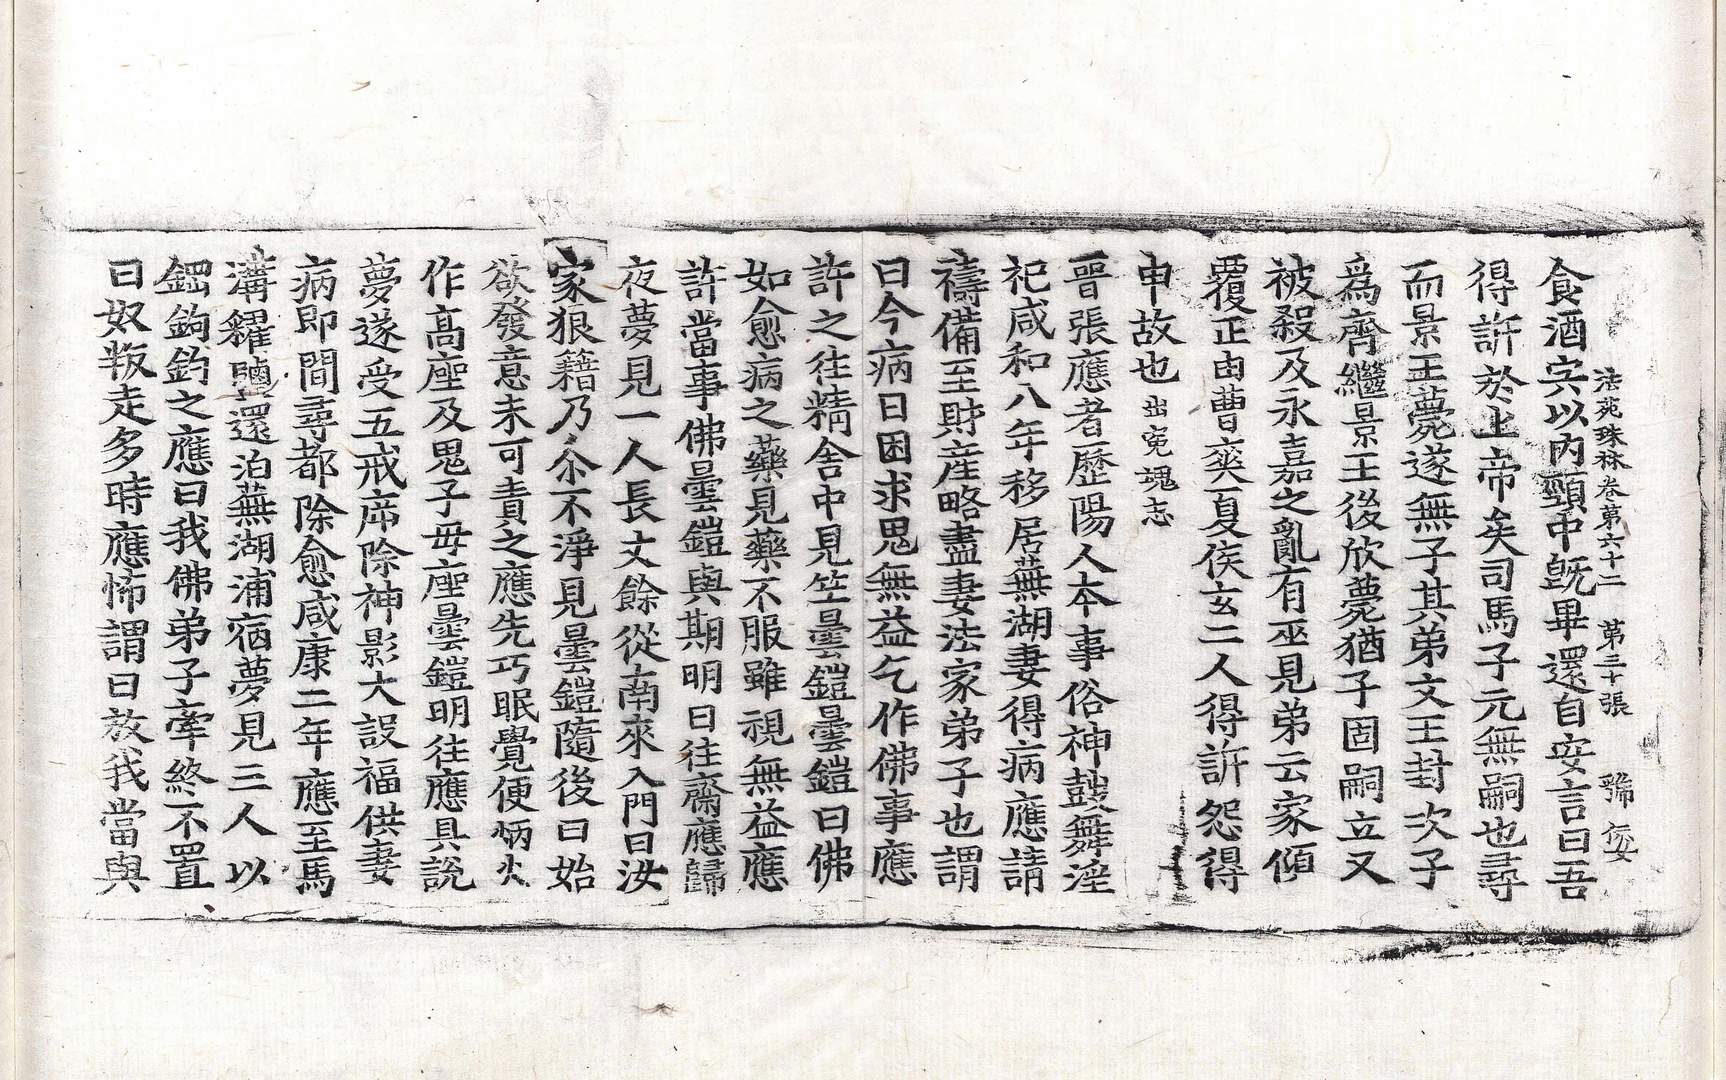 法苑珠林卷第六十二 第三十張 號
食酒宍以內頸中旣畢還自安言曰吾
得訴於上帝矣司馬子元無嗣也尋
而景王薨遂無子其弟文王封次子
爲齊繼景王後欣薨猶子固嗣立又
被殺及永嘉之亂有巫見弟云家傾
覆正由曹爽夏侯玄二人得訴怨得
申故也 出寃魂志
晉張應者歷陽人本事俗神鼓舞淫
祀咸和八年移居蕪湖妻得病應請
禱備至財産略盡妻法家弟子也謂
曰今病日困求鬼無益乞作佛事應
許之往精舍中見竺曇鎧曇鎧曰佛
如愈病之藥見藥不服雖視無益應
許當事佛曇鎧與期明日往齋應歸
夜夢見一人長丈餘從南來入門曰汝
家狠籍乃尒不淨見曇鎧隨後曰始
欲發意未可責之應先巧眠覺便炳火
作高座及鬼子母座曇鎧明往應具說
夢遂受五戒㡿除神影大設福供妻
病即間尋都除愈咸康二年應至馬
溝糴鹽還泊蕪湖浦宿夢見三人以
鎁鉤釣之應曰我佛弟子牽終不置
曰奴叛走多時應怖謂曰放我當與